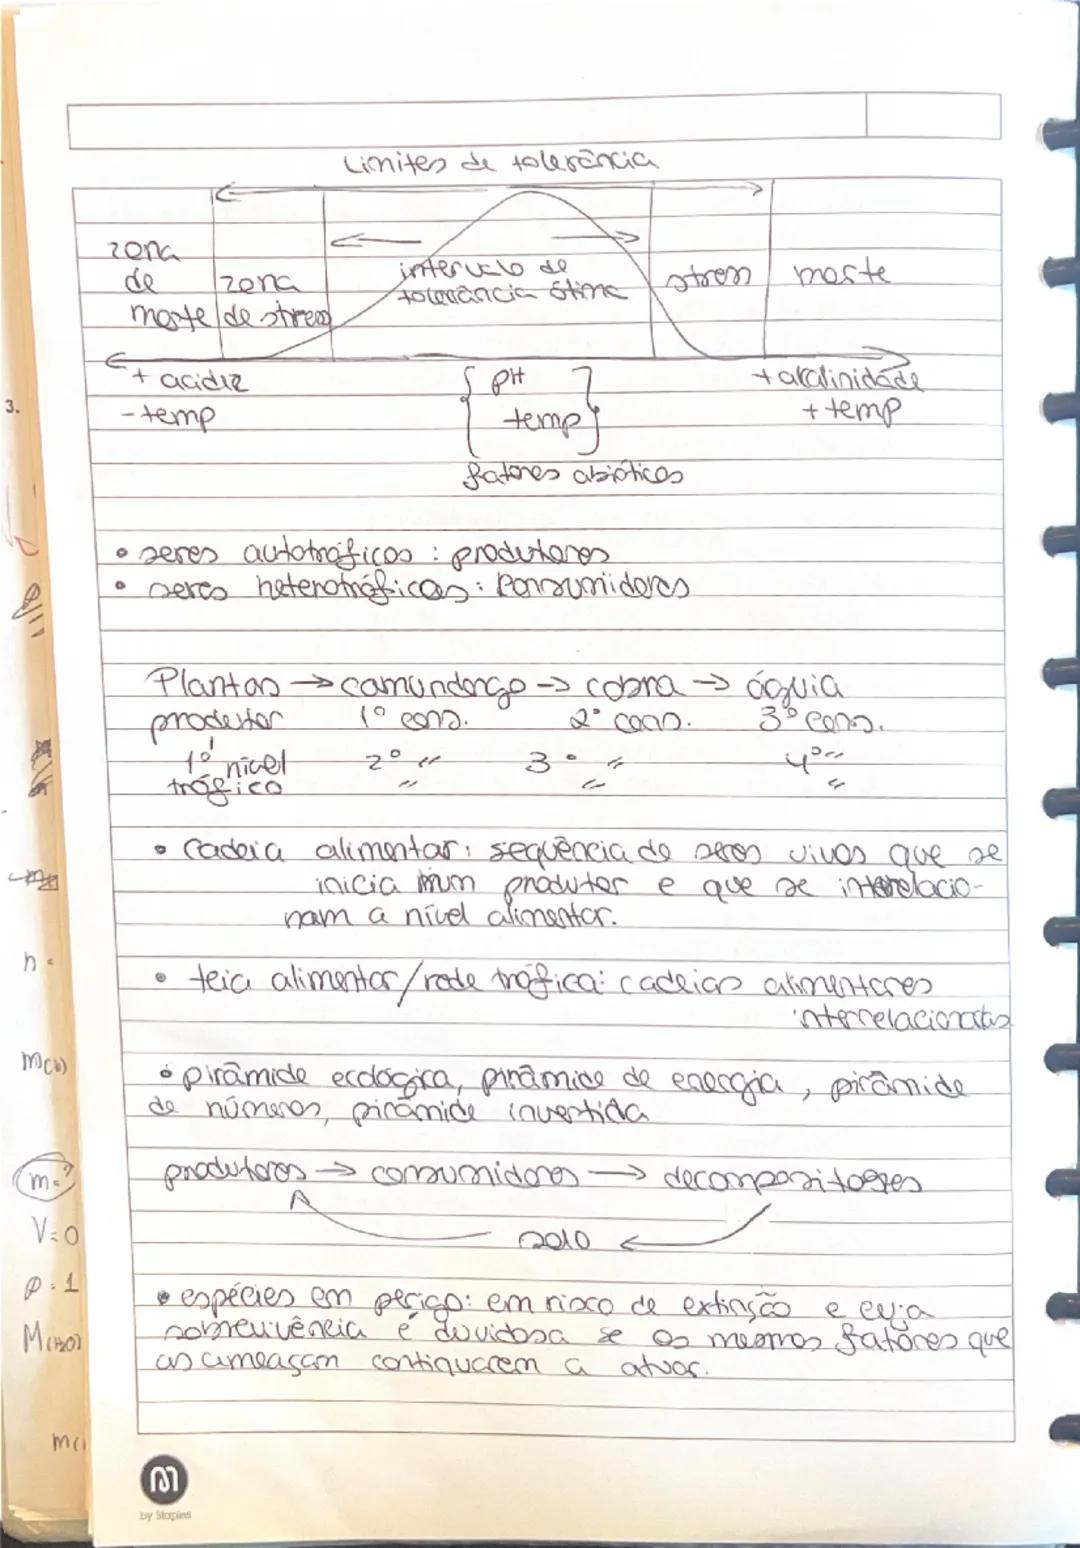 Limites de tolerância
zona
de
morte
zona
de stress
intervalo de
tolerância ótima
stress
morte
+ acidez
- temp
pH
temp
fatores abióticos
+ alcalinidade
+ temp
• seres autotróficos : produtores
• seres heterotróficos : consumidores
Plantas → camundongo → cobra → águia
produtor 1º cons. 2º cons. 3º cons.
1º nível 2º " 3º " 4º "
trófico " " "
• cadeia alimentar: sequência de seres vivos que se
inicia num produtor e que se interelacio-
nam a nível alimentar.
• teia alimentar/rede trófica: cadeias alimentares
interrelacionadas
• pirâmide ecológica, pirâmide de energia, pirâmide
de números, pirâmide invertida
produtores → consumidores → decompositores
solo
• espécies em perigo: em risco de extinção e cuja
sobrevivência é duvidosa se os mesmos fatores que
as ameaçam continuarem a atuar.
by Staples
3.
n =
m(b)
m = ?
V = 0
ρ = 1
M(H2O)
m(